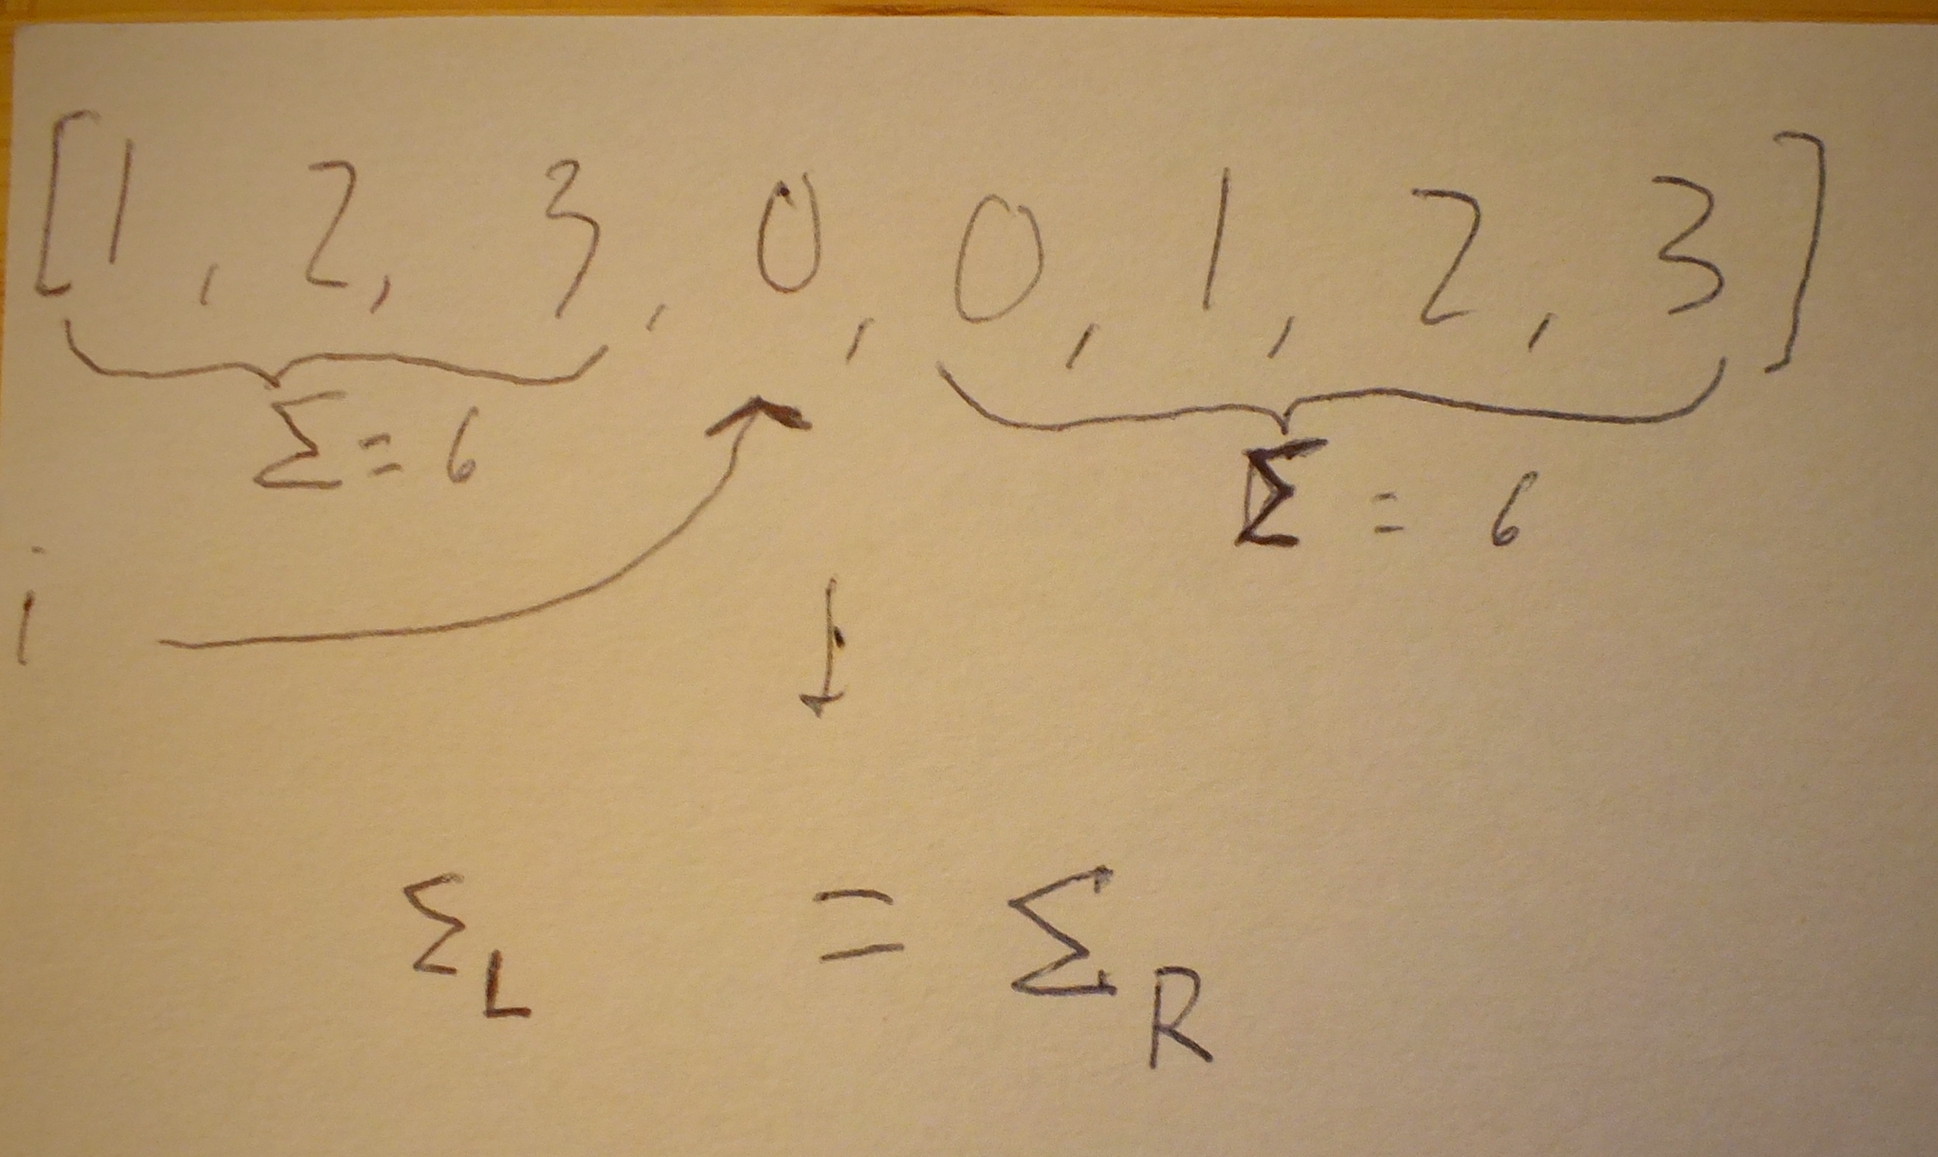 [1, 2, 3, 0, 0, 1, 2, 3]
Σ = 6
Σ = 6
i
Σ_L = Σ_R